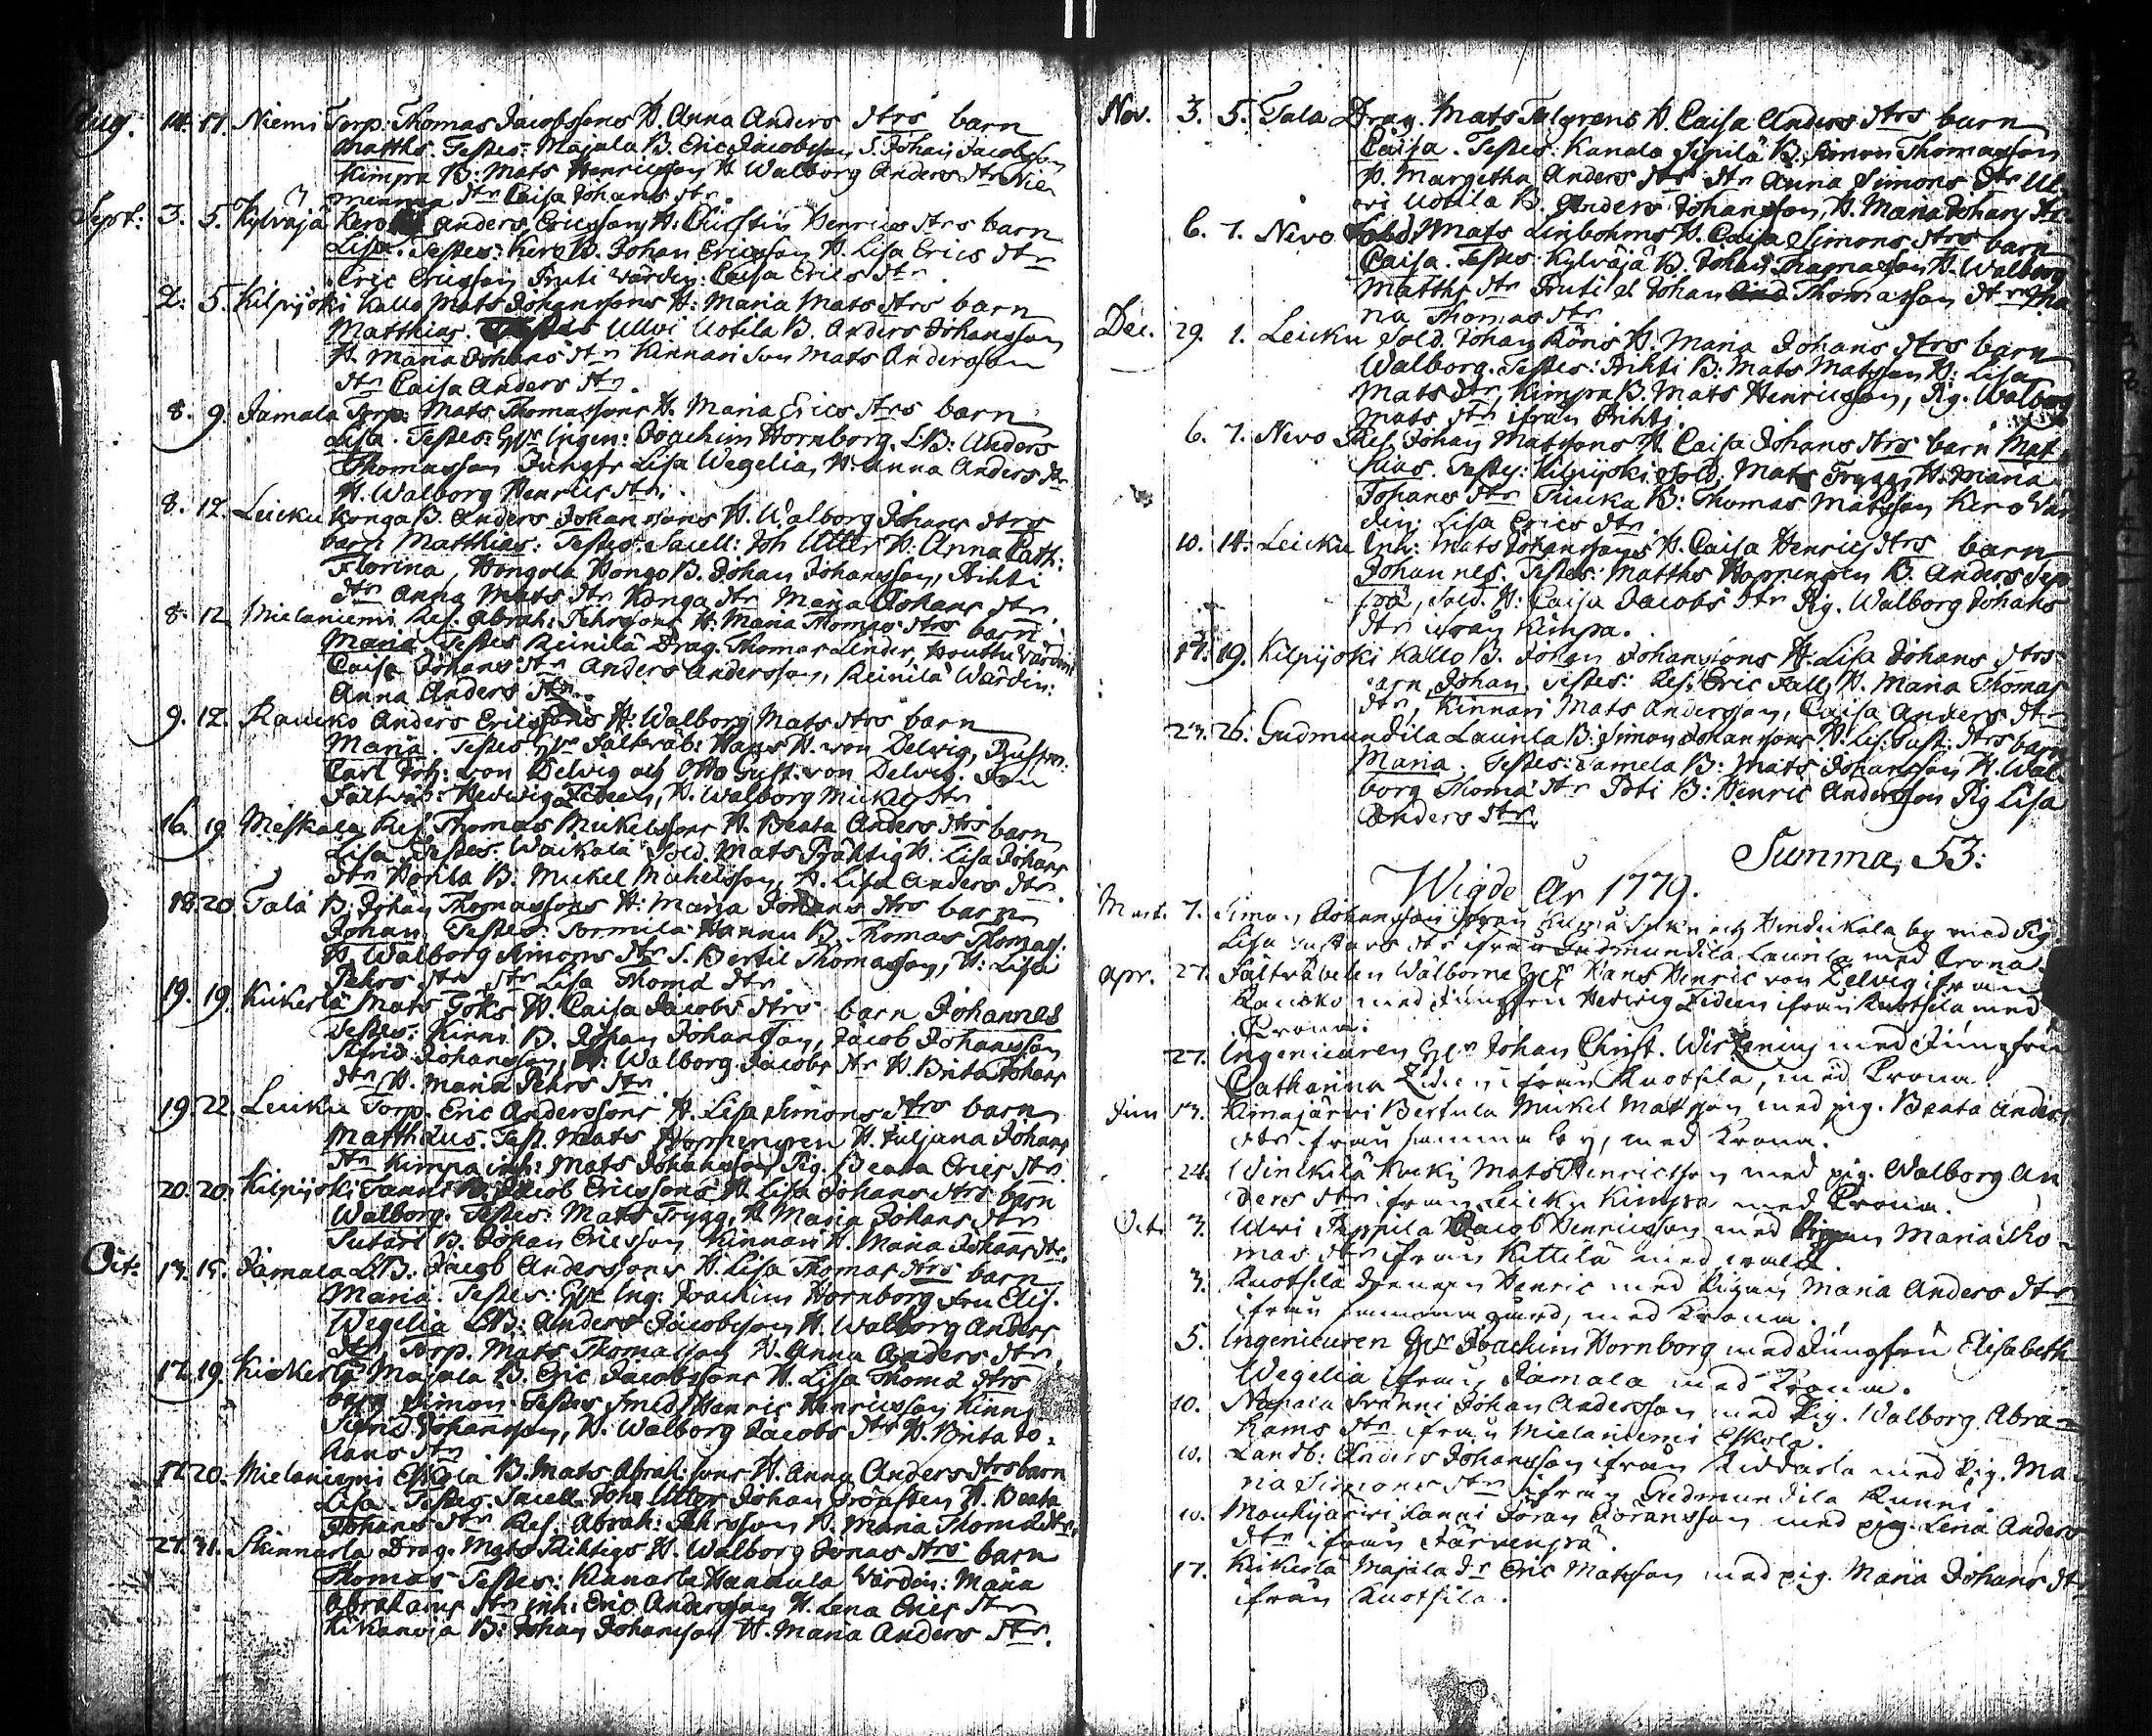 Aug. 14. 17. Niemi Torp: Thomas Jacobssons H. Anna Anders dtrs barn
Matths. Testes: Majala B. Eric Jacobsson, S. Johan Jacobsson
Kimpa B: Mats Henricsson H. Walborg Anders dtr Nie
dtr Caisa Johans dtr.
Sept: 3. 5. Kylväjä Kero Anders Ericssons H: Christin Henrics dtrs barn
Lisa. Testes: Kero B. Johan Ericsson H. Lisa Erics dtr
Eric Ericsson Pruti Wärdin: Caisa Erics dtr.
2. 5. Kilpijoki Kallo Mats Johanssons H: Maria Mats dtrs barn
Matthias. Ullvi Uotila B. Anders Johansson
H. Maria Johans dtr Kinnari Son Mats Andersson
dtr Caisa Anders dtr.
8. 9. Jamala Torp: Mats Thomassons H. Maria Erics dtrs barn
Lisa. Testes: Hr Ingen: Joachim Hornborg. L.B: Anders
Thomasson Jungfr Lisa Wegelia, H. Anna Anders dtr
H. Walborg Henrics dtr.
8. 12. Leicku Konga B. Anders Johanssons H. Walborg Johans dtrs
barn Matthias: Testes: Sacell: Joh Utter H. Anna Cath:
Florina, Hongola Hongo B. Johan Johansson, Prihti
dtr Anna Mats dtr Konga dtr Maria Johans dtr
8. 12. Mielaniemi Ref. Abrah: Pehrssons H. Maria Thomas dtrs barn
Maria. Testes Reinilä Drag. Thomas Linder, Wärdin
Caisa Johans dtr Anders Andersson, Reinilä Wärdin:
Anna Anders dtr.
9. 12. Raucko Anders Ericssons H: Walborg Mats dtrs barn
Maria. Testes Hr Fältväb: Hans H. von Delvig, Rustm:
Carl Joh: von Delvig och Otto Gust. von Delvig. Fru
Fältväb: Hedwig Zideen, H. Walborg Mickels dtr
16. 19 Meskala Ref Thomas Mickelssons H. Beata Anders dtrs barn
Lisa Testes. Waikala Sold. Mats Präktig H. Lisa Johans
dtr Horila B. Mickel Michelsson, H. Lisa Anders dtr.
18. 20 Tala B. Johan Thomassons H: Maria Johans dtrs barn
Johan. Testes: Sormula Hannu B. Thomas Thomass.
H. Walborg Simons dtr S. Bertil Thomasson, H: Lisa
Pehrs dtr dtr Lisa Thoma dtr
19. 19. Kickerlä Mats Göks H. Caisa Jacobs dtrs barn Johannes
Testes: Kinni B. Johan Johansson, Jacob Johansson
Sigfrid Johansson, H: Walborg Jacobs dtr H. Brita Johans
dtr H. Maria Pehrs dtr
19. 22. Leicku Torp. Eric Anderssons H. Lisa Simons dtrs barn
Matthäus. Test. Mats H. Juliana Johans
dtr Kimpa inh: Mats Johansson Pig. Beata Erics dtr
20. 20. Kilpijoki Tanni B. Jacob Ericssons H. Lisa Johans dtrs barn
Walborg. Testes: Mats Trygg, H. Maria Johans dtr
Sutari B. Johan Ericsson Kinnari H. Maria Johans dtr.
Oct: 13. 15. Jamala L.B: Jacob Anderssons H. Lisa Thomas dtrs barn
Maria. Testes: Hr Ing: Joachim Hornborg Fru Elis.
Wegelia LB: Anders Jacobsson H. Walborg Anders
dtr, Torp. Mats Thomasson H. Anna Anders dtr
17. 19. Kickerlä Majala B. Eric Jacobssons H. Lisa Thoma dtrs
barn Simon Testes Smed Henric Henricsson Kinni
Sigfrid Johansson, H. Walborg Jacobs dtr H. Brita Jo-
hans dtr
17. 20. Mielaniemi Eskola B. Mats Abrah:sons H. Anna Anders dtrs barn
Lisa. Testes. Sacell. Joh. Utter Johan Grönsten H. Beata
Johans dtr Ref. Abrah: Pehrsson H. Maria Thoma dtr.
27. 31. Skinnarla Drag. Mats Ricktigs H. Walborg Jonas dtrs barn
Thomas Testes: Kinnarla Hannula Wärdin: Maria
Abrahams dtr inh: Eric Andersson H. Lena Erics dtr
Kikanoja B: Johan Johansson H. Maria Anders dtr.
Nov. 3. 5. Tala Drag. Mats Talgrens H. Caisa Anders dtrs barn
Caisa. Testes: Kanala Sipilä B. Simon Thomasson
H. Margetha Anders dtr dtr Anna Simons dtr Ul-
vi Uotila B. Anders Johansson, H. Maria Johans dtr.
6. 7. Nevo Sold. Mats Linbohms H. Caisa Simons dtrs barn
Caisa. Testes: Kylväjä B. Johan Thomasson H. Walborg
Matths dtr Pruti S. Johan Thomasson dtr Ma
na Thomas dtr
Dec. 29. 1. Leicku Sold. Johan Röns H. Maria Johans dtrs barn
Walborg. Testes: Prihti B: Mats Matsson H: Lisa
Mats dtr, Kimpa B. Mats Henricsson, Pig. Walborg
Mats dtr ifrån Prihti.
6. 7. Nevo Ref. Johan Matssons H. Caisa Johans dtrs barn Mat
thias. Testes: Kilpijoki Sold. Mats Trygg, H. Maria
Johans dtr B: Thomas Matsson Kero Wär
din: Lisa Erics dtr.
10. 14. Leicku Inh: Mats Johanssons H. Caisa Henrics dtrs barn
Johannes. Testes: Matths B. Anders Sep
Sold. H: Caisa Jacobs dtr Pig. Walborg Johans
dtr ifrån Kimpa.
17. 19. Kilpijoki Kallo B. Johan Johanssons H. Lisa Johans dtrs
barn Johan. Testes: Ref: Eric Fall, H. Maria Thomas
dtr, Kinnari Mats Andersson, Caisa Anders dtr
23. 26. Gudmundila Launla B: Simon Johanssons H. Lis: Gust: dtrs barn
Maria. Testes: Jamela B: Mats Johansson H. Wal-
borg Thoma dtr Poti B: Henric Andersson Pig Lisa
Anders dtr.
Summa, 53:
Wigde År 1779.
Mart. 7. Simon Johansson ifrån Sokn och Hindickala by med Pig
Lisa Gustavs dtr ifrån Gudmundila Launla med Crona.
Apr. 27. Fältväbelen Wälborne Hr Hans Henric von Delvig ifrån
Raucko med Jungfru Hedwig Zideen ifrån Kuotsila med
Crona.
27. Ingenieuren Hr Johan Christ. Wirzening med Jungfru
Catharina Zideen ifrån Kuotsila, med Crona.
Jun 13. Aimajärvi Bertula Mickel Matsson med pig. Beata Anders
dtr ifrån samma by, med Crona.
24. Winckilä Mats Henricsson med pig. Walborg An
ders dtr ifrån Leicku Kimpa med Crona.
Oct. 3. Ulvi Jacob Henricsson med Pigan Maria Tho-
mas dtr ifrån Kittilä med
3. Kuotsila drengen Henric med Pigan Maria Anders dtr
ifrån samma gård, med Crona.
5. Ingenieuren Hr Joachim Hornborg med Jungfru Elisabeth
Wegelia ifrån Jamala med Crona.
10. Johan Andersson med Pig. Walborg Abra=
hams dtr ifrån Mielaniemi Eskola.
10. Landb: Anders Johansson ifrån med Pig. Ma-
ria Simons dtr ifrån Gudmundila
10. Lanni Jöran Jöransson med pig. Lena Anders
dtr ifrån Järvenpä.
17. Kickerlä Majala Dr Eric Matsson med pig. Maria Johans dtr
ifrån Kuotsila.